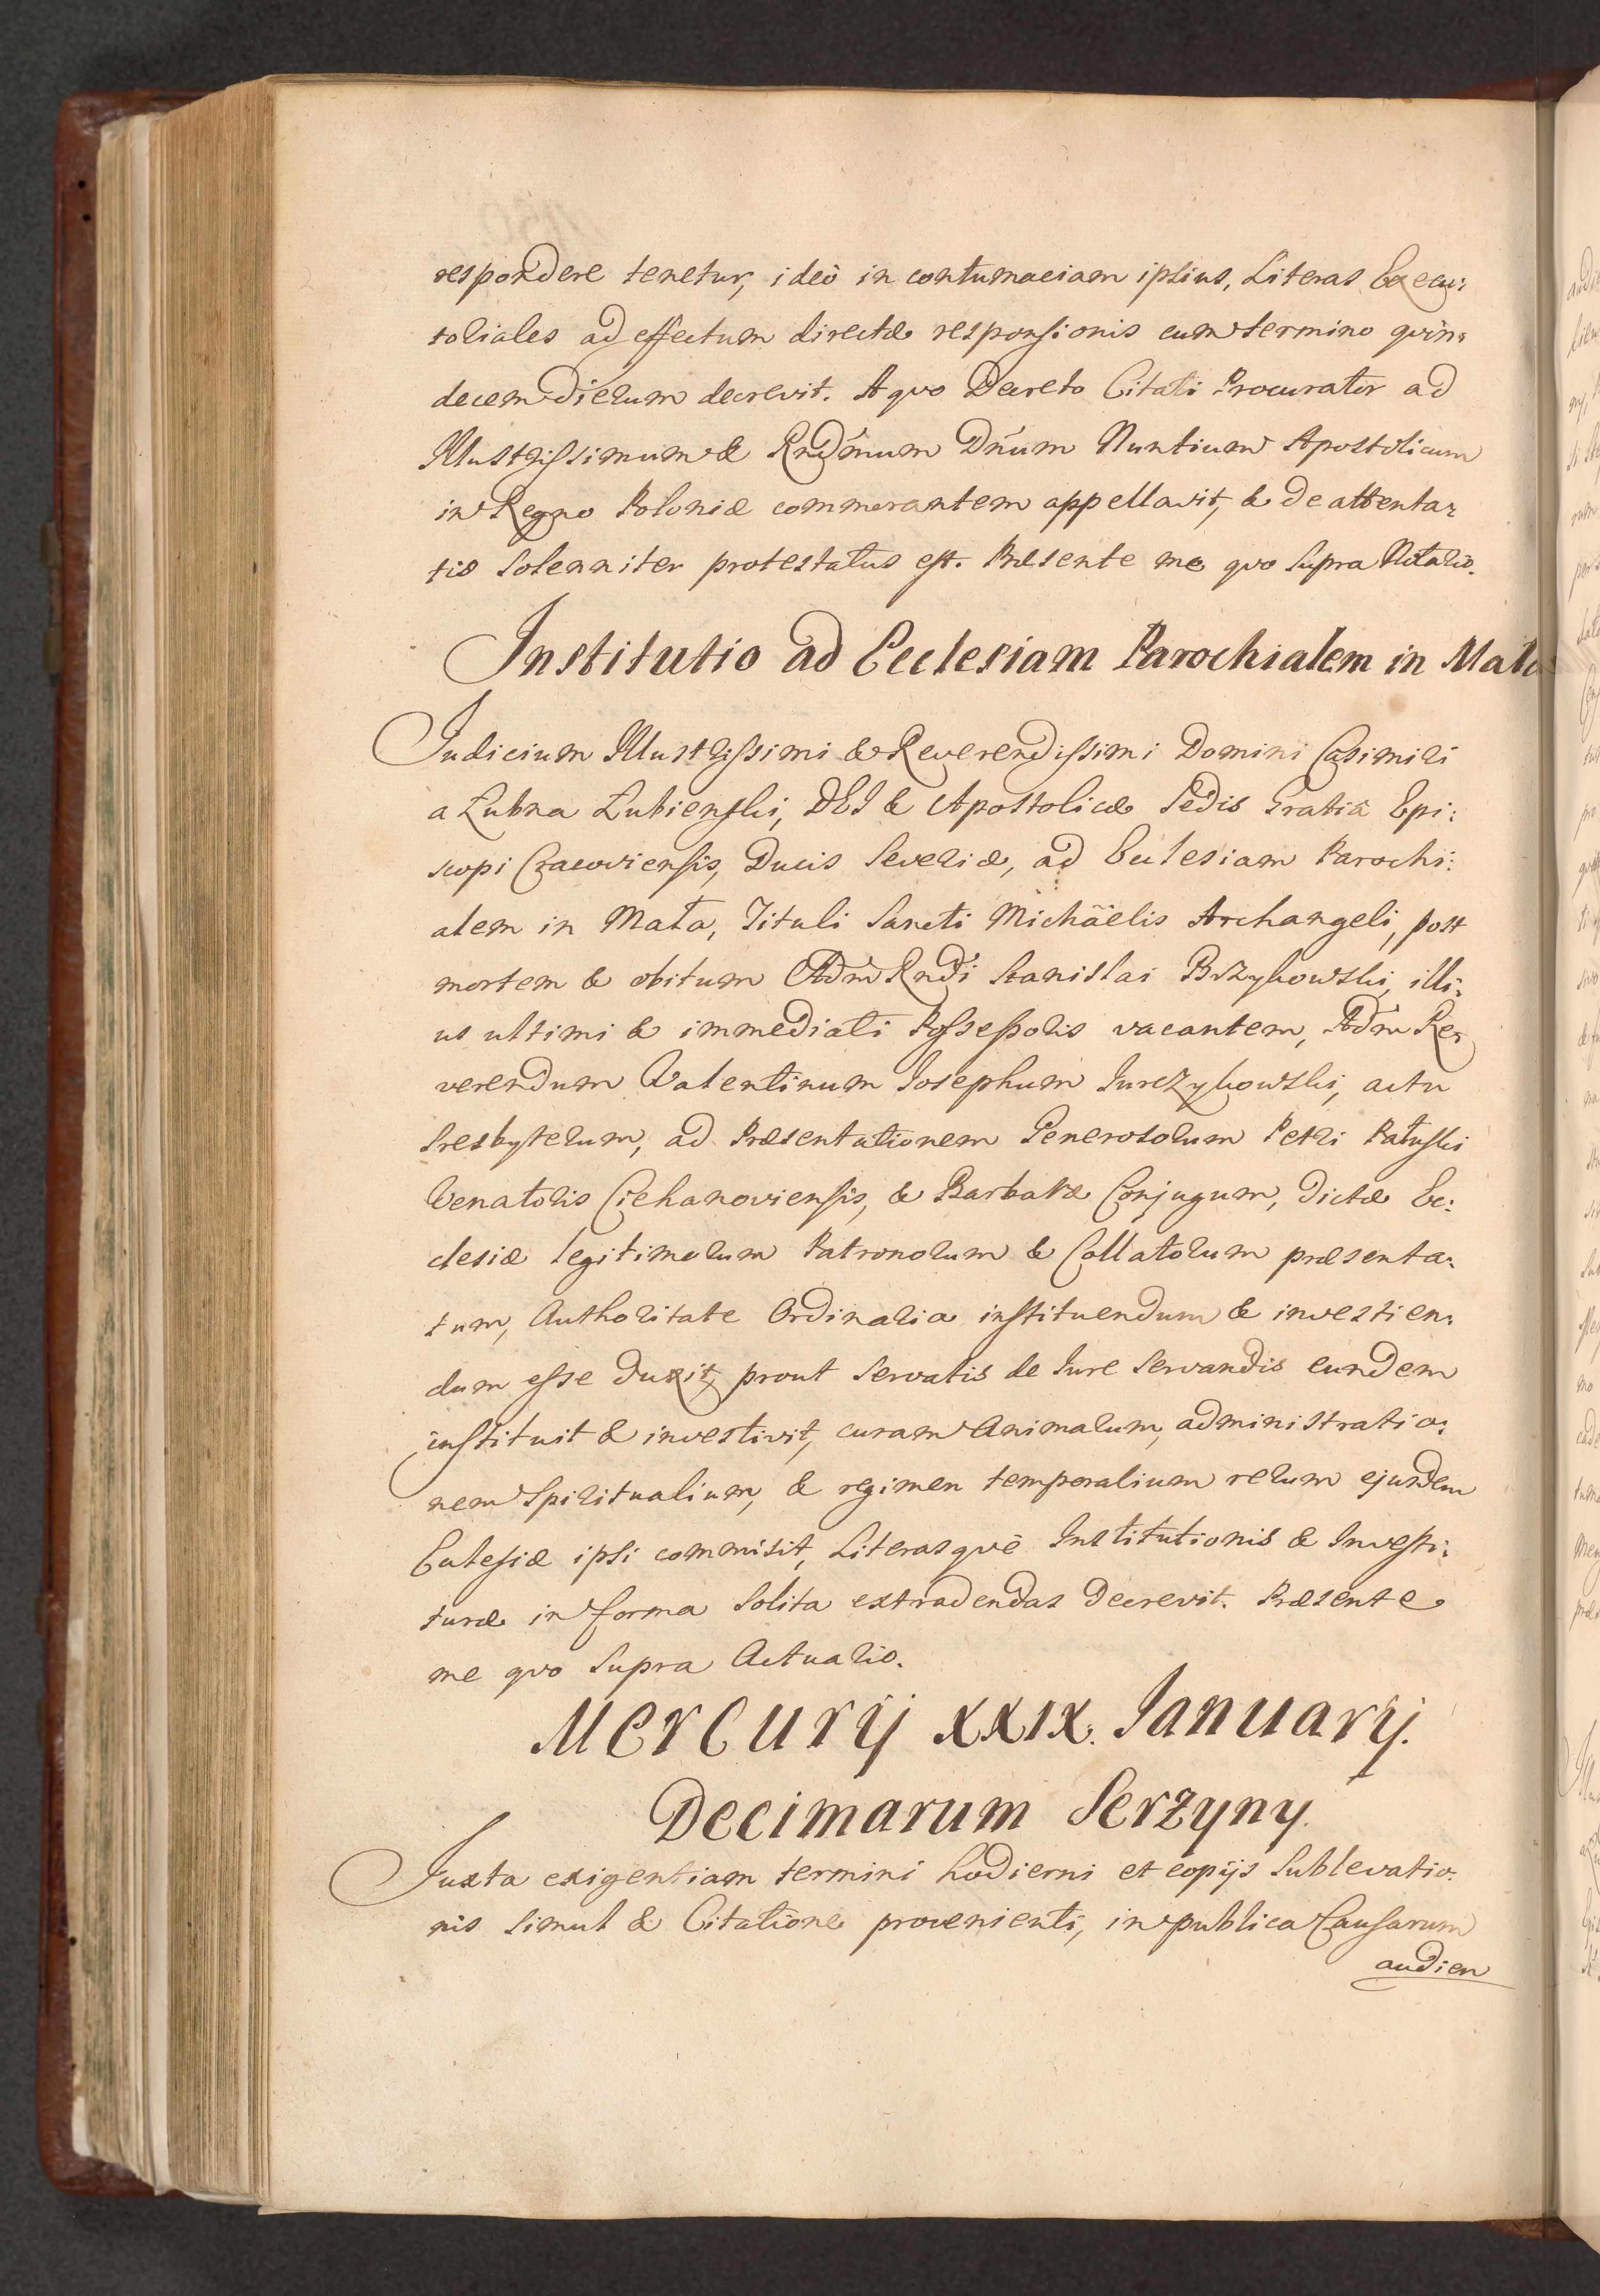 respondere tenetur, ideò in contumaciam ipsius, Literas Execu:
toriales ad effectum directæ responsionis cum termino quin:
decem dierum decrevit. A quo Decreto Citati Procurator ad
Illustrissimum & Rndm̃um Dñum Nuntium Apostolicum
in Regno Poloniæ commorantem appellavit, & de attenta:
tis solenniter protestatus est. Præsente me quo supra Notario.
Institutio ad Ecclesiam Parochialem in
Judicium Illustrissimi & Reverendissimi Domini Casimiri
a Łubna Łubienski, DEI & Apostolicæ Sedis Gratiâ Epi:
scopi Cracoviensis, Ducis Severiæ, ad Ecclesiam Parochi:
alem in Mala, Tituli Sancti Michäelis Archangeli, post
mortem & obitum Adm̃ Rndi Stanislai Brzykowski, illi:
us ultimi & immediati Possessoris vacantem, Adm̃ Re:
verendum Valentinum Josephum Jurczykowski, actu
Presbyterum, ad Præsentationem Generosorum Petri
Venatoris Ciehanoviensis, & Barbaræ Conjugum, dictæ Ec:
clesiæ legitimorum Patronorum & Collatorum præsenta:
tum, Authoritate Ordinaria instituendum & investien:
dum esse duxit, prout servatis de Jure servandis eundem
instituit & investivit, curam Animarum, administratio:
nem Spiritualium, & regimen temporalium rerum ejusdem
Eccle­siæ ipsi commisit, Literasquè Institutionis & Investi:
turæ in forma solita extradendas decrevit. Præsente
me quo supra Actuario.
Mercurij XXIX. Januarij.
Decimarum Serzyny.
Juxta exigentiam termini hodierni et copijs sublevatio:
nis simul & Citatione provenienti, in publica Causarum
audien